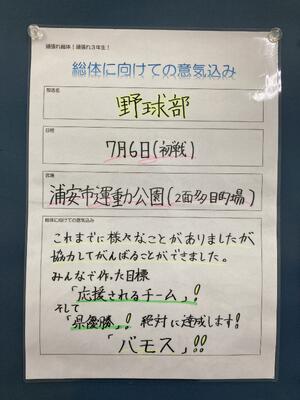 頑張れ総体！頑張れ3年生！
総体に向けての意気込み
部活名
野球部
日時
7月6日(初戦)
会場
浦安市運動公園(2面多目的場)
総体に向けての意気込み
これまでに様々なことがありましたが
協力してがんばることができました。
みんなで作った目標
「応援されるチーム」!
そして
「県優勝」! 絶対に達成します!
「バモス」!!